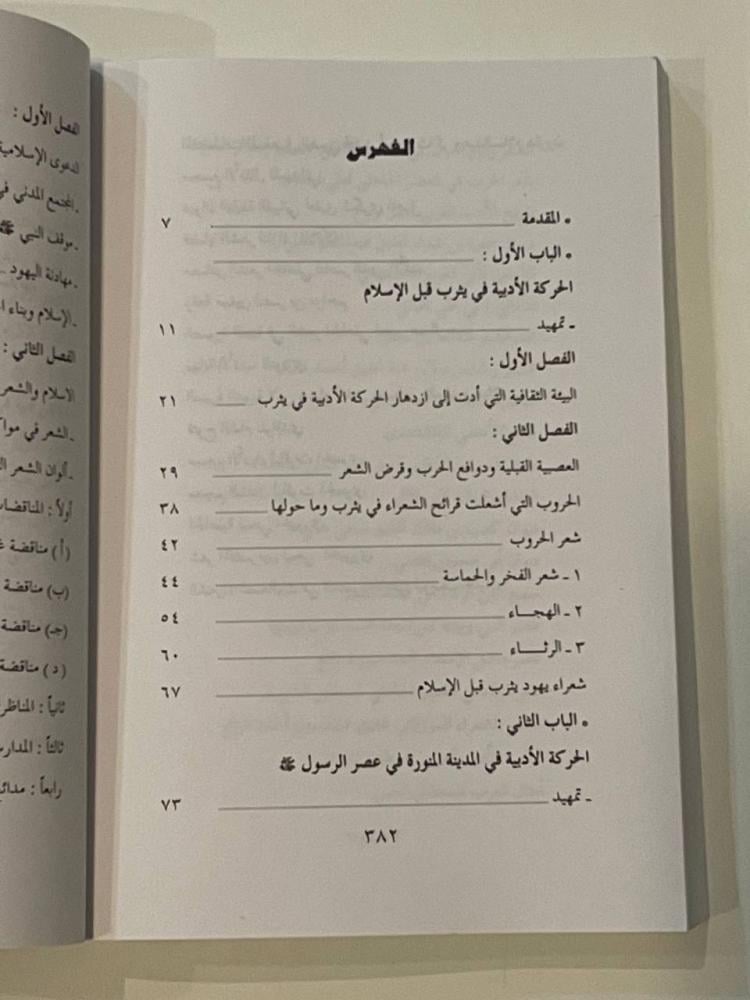 الفهرس
• المقدمة ٧
• الباب الأول :
الحركة الأدبية في يثرب قبل الإسلام
ـ تمهيد ١١
الفصل الأول :
البيئة الثقافية التي أدت إلى ازدهار الحركة الأدبية في يثرب ٢١
الفصل الثاني :
العصبية القبلية ودوافع الحرب وقرض الشعر ٢٩
الحروب التي أشعلت قرائح الشعراء في يثرب وما حولها ٣٨
شعر الحروب ٤٢
١ ـ شعر الفخر والحماسة ٤٤
٢ ـ الهجـــاء ٥٤
٣ ـ الرثـــاء ٦٠
شعراء يهود يثرب قبل الإسلام ٦٧
• الباب الثاني :
الحركة الأدبية في المدينة المنورة في عصر الرسول ﷺ
ـ تمهيد ٧٣
٣٨٢
الفصل الأول :
الإسلامية
ـ المجتمع المدني
ـ موقف النبي ﷺ
ـ مهادنة اليهود
ـ الإسلام وبناء
الفصل الثاني :
الاسلام والشعر
ـ الشعر في
ـ ألوان الشعر
أولاً :
(أ) مناقضة
(ب) مناقضة
(جـ) مناقضة
(د) مناقضة
ثانياً :
ثالثاً :
رابعاً :